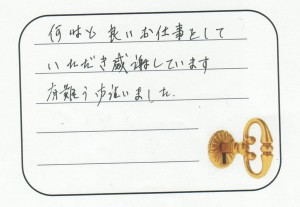 何時も良いお仕事をして
いただき感謝しています
有難う御座いました.